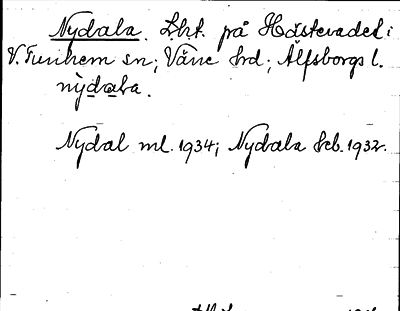 Nydala. Lht. på Hästevadet i
V. Tunhem sn; Väne hrd; Älfsborgs l.
nỳdala.
Nydal ml. 1934; Nydala hcb. 1932.